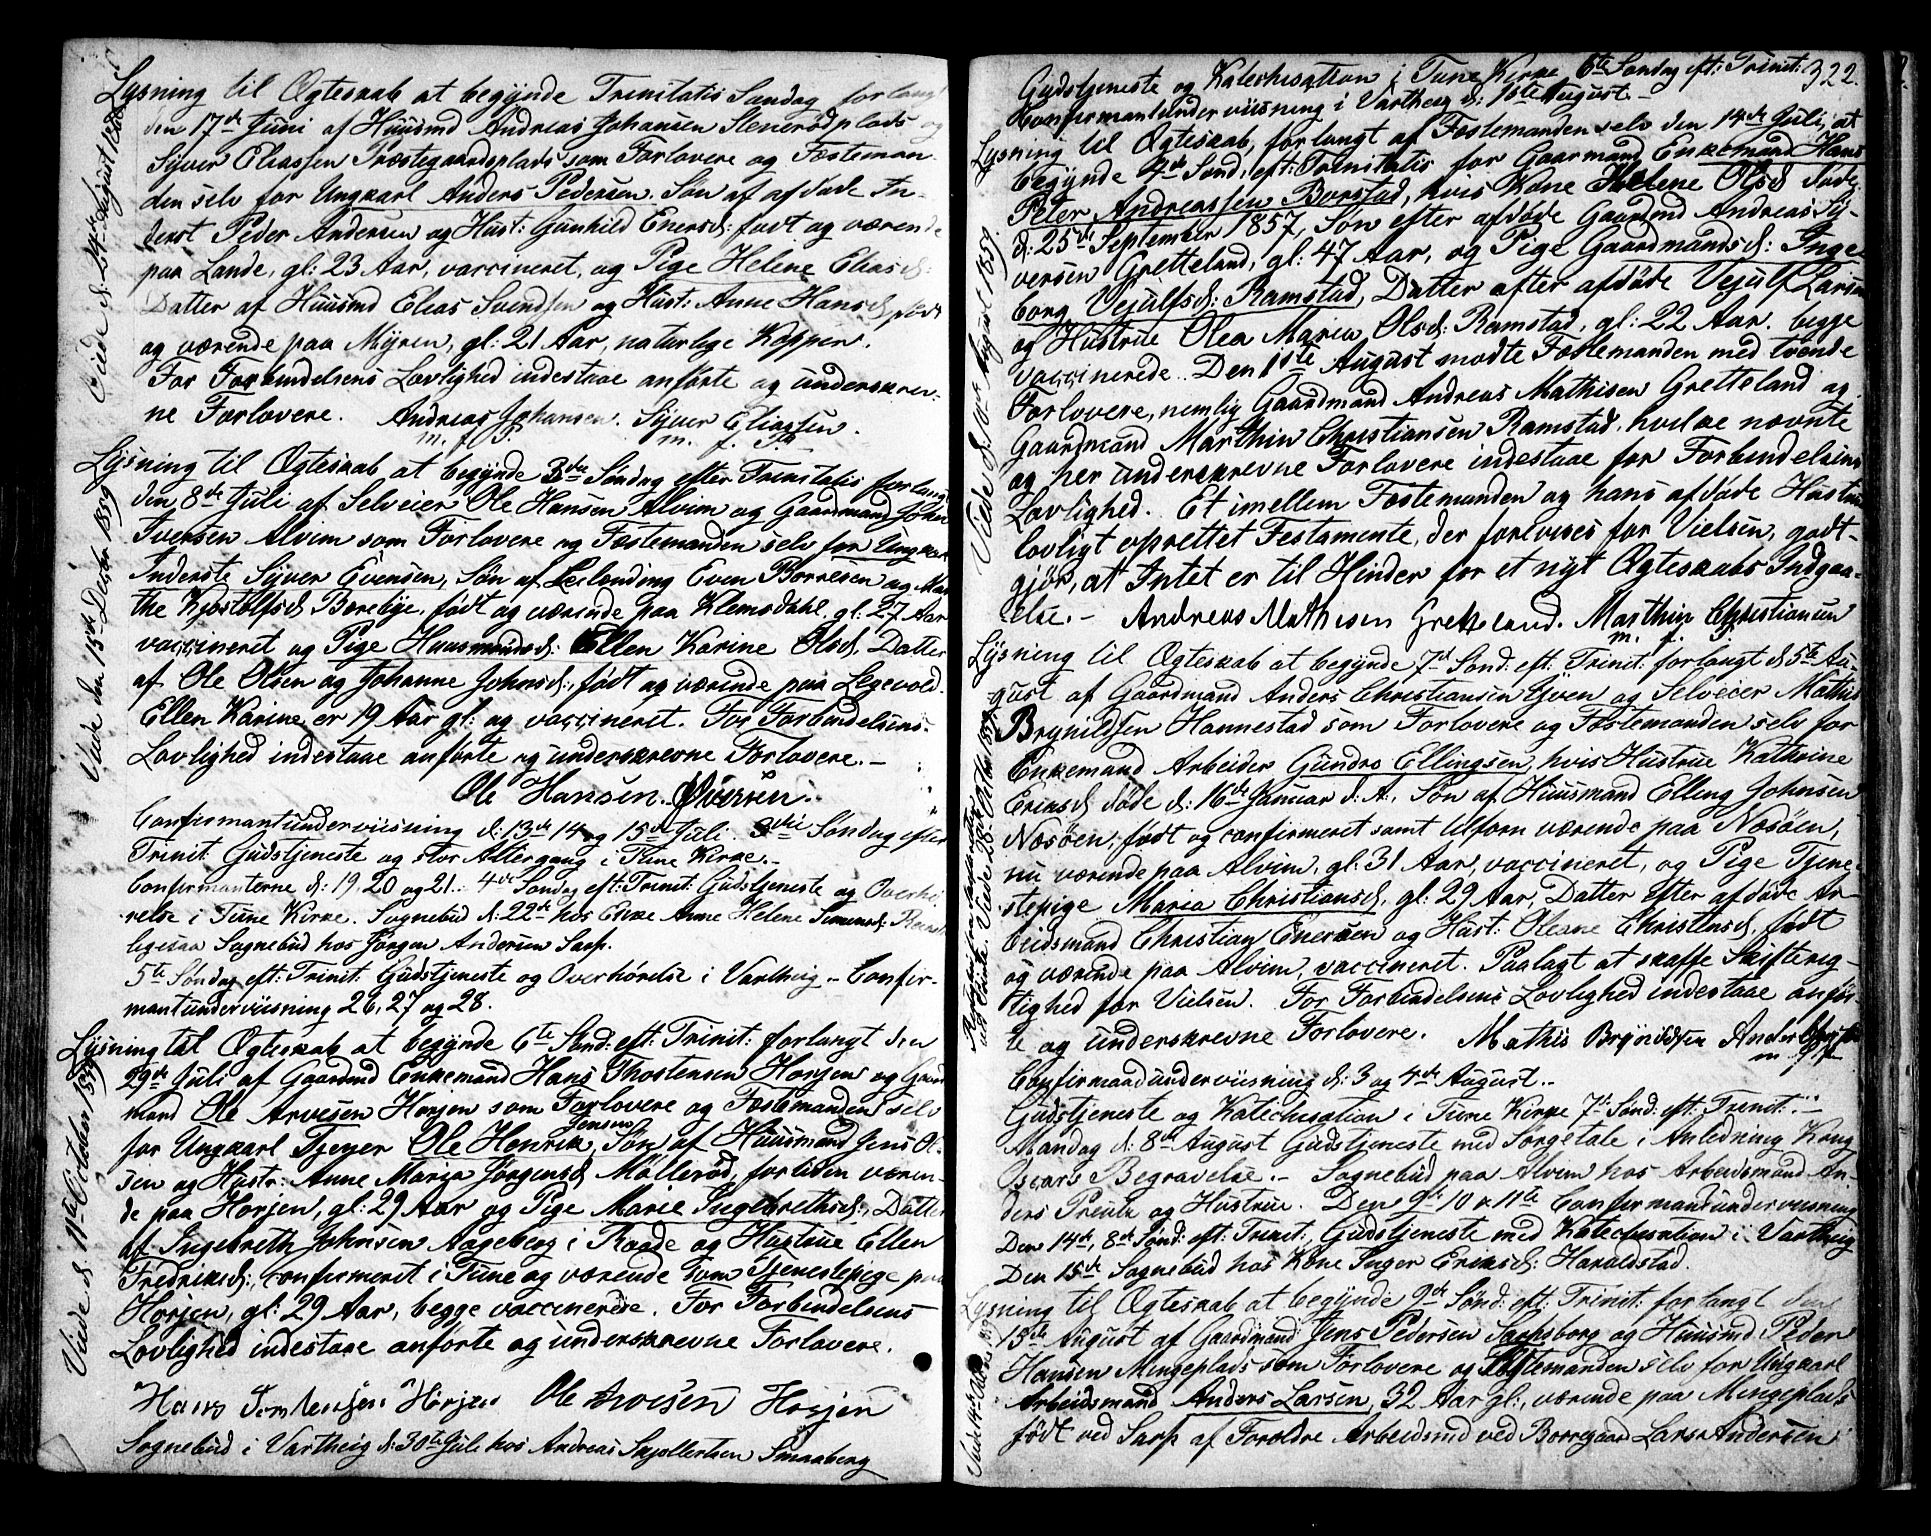 Lysning til Ægteskab at begynde Trinitatis Søndag forlangt
den 17de Juni af Huusmd Andreas Johansen Stenerødplads og
Syver Eliassen Præstegaardsplads som Forlovere og Fæsteman
den selv for Ungkarl Anders Pedersen. Søn af afdøde In-
derst Peder Andersen og Hust: Gunhild Enersd: født og værende
paa Lande, gl: 23 Aar, vaccineret, og Pige Helene Eliasd:
Datter af Huusmd Elias Svendsen og Hust: Anne Hansd, født
og værende paa Myren, gl: 21 Aar, naturlige Kopper.
For Forbindelsens Lovlighed indestaae anførte og underskrev-
ne Forlovere. Andreas Johansen. Syver Eliassen.
m. f. P. m. f. P.
Viede d: 24de August 1860
Lysning til Ægteskab at begynde 3die Søndag efter Trinitatis forlangt
den 8de Juli af Selveier Ole Hansen Alvim og Gaardmand John
Iversen Alvim som Forlovere og Fæstemanden selv for Ungkarl
Inderste Syver Evensen, Søn af Leilending Even Borresen og Mar
the Kjostolfsd Borebye, født og værende paa Klemsdahl, gl: 27 Aar
vaccineret og Pige Huusmandsd: Ellen Karine Olsd, Datter
af Ole Olsen og Johanne Johnsd:, født og værende paa Legevold.
Ellen Karine er 19 Aar gl: og vaccineret. For Forbindelsens
Lovlighed indestaae anførte og underskrevne Forlovere.-
Ole Hansen.
Viede den 15de Decbr 1859
Confirmantundervisning d: 13de 14 og 15de Juli. 3die Søndag efter
Trinit: Gudstjeneste og stor Altergang i Tune Kirke.-
Confirmanterne d: 19, 20 og 21. 4de Søndag eft: Trinit: Gudstjeneste og Overhø
relse i Tune Kirke. Sognebud d: 22de hos Enke Anne Helene Simensd:
ligesaa Sognebud hos Jørgen Andersen Sarp.
5te Søndag eft: Trinit: Gudstjeneste og Overhørelse i Vartheig - Confir-
mantundervisning 26, 27 og 28.
Lysning til Ægteskab at begynde 6te Sønd: eft: Trinit: forlangt den
29de Juli af Gaardmd Enkemand Hans Thostensen Horjen og Gaard
mand Ole Arvesen Horjen som Forlovere og Fæstemanden selv
for Ungkarl Tjener Ole Henrik Jensen Søn af Huusmand Jens Ol-
sen og Hustr: Anne Maria Jørgensd Møllerød, fortiden væren-
de paa Horjen, gl: 29 Aar og Pige Marie Ingebrethsd:, Datter
af Ingebreth Johnsen Aageberg i Raade og Hustrue Ellen
Fredriksd:, confirmeret i Tune og værende som Tjenestepige paa
Horjen, gl: 29 Aar, begge vaccinerede. For Forbindelsens
Lovlighed indestaae anførte og underskrevne Forlovere.
Hans Torstensen Horjen Ole Arvesen Horjen
Viede d: 11te October 1859
Sognebud i Vartheig d: 30te Juli hos Andreas Skjollertsen Smaaberg
322.
Gudstjeneste og Katechisation i Tune Kirke 6te Søndag eft: Trinit:
Confirmantundervisning i Vartheig d: 1ste August.-
Lysning til Ægteskab, forlangt af Fæstemanden selv den 14de Juli, at
begynde 4de Sønd, eft: Trinitatis for Gaarmand Enkemand Hans
Peter Andreassen Borstad, hvis Kone Helene Olsd døde
d: 25de September 1857, Søn efter afdøde Gaardmd Andreas Sy-
versen Gretteland, gl: 47 Aar, og Pige Gaardmandsd: Inge
borg Vejulfsd: Ramstad, Datter efter afdøde Vejulf Larsen
og Hustrue Olea Maria Olsd: Ramstad, gl: 22 Aar. begge
vaccinerede. Den 1ste August mødte Fæstemanden med tvende
Forlovere, nemlig Gaardmand Andreas Mathisen Gretteland og
Gaardmand Marthin Christiansen Ramstad, hvilke nævnte
og her underskrevne Forlovere indestaae for Forbindelsens
Lovlighed. Et imellem Fæstemanden og hans afdøde Hustrue
lovligt oprettet Festamente, der forevises før Vielsen, godt-
gjør, at Intet er til Hinder for et nyt Ægteskabs Indgaa-
else.- Andreas Mathisen Gretteland. Marthin Christiansen
m. f. P.
Lysning til Ægteskab at begynde 7de Sønd: eft: Trinit: forlangt d: 5te Au-
gust af Gaardmand Anders Christiansen Yven og Selveier Mathis
Brynildsen Hannestad som Forlovere og Fæstemanden selv for
Enkemand Arbeider Gundro Ellingsen, hvis Hustrue Kathrine
Eriksd døde d: 16de Januar d: A., Søn af Huusmand Elling Johnsen
Nosøen, født og confirmeret samt tilforn værende paa Nosøen,
nu værende paa Alvim, gl: 31 Aar, vaccineret, og Pige Tjene
stepige Maria Christiansd, gl: 29 Aar, Datter efter afdøde Ar-
beidsmand Christian Enersen og Hust: Oleane Christensd, født
og værende paa Alvim, vaccineret. Paalagt at skaffe Skifterig-
tighed før Vielsen. For Forbindelsens Lovlighed indestaae anfør
te og underskrevne Forlovere. Mathis Brynildsen Anders
Confirmandundervisning d: 3 og 4de August.-
Gudstjeneste og Katechisation i Tune Kirke 7de Sønd: eft: Trenit:.-
Mandag d: 8de August Gudstjeneste med Sørgetale i Anledning Kong
Oscars Begravelse.- Sognebud paa Alvim hos Arbeidsmand An-
ders Preule og Hustrue. Den 9de 10 & 11te Confirmantundervisning
Den 14de, 8de Sønd: eft: Trinit:, Gudstjeneste med Katechisation i Vartheig
Den 15de Sognebud hos Kone Inger Eriksd: Haraldstad.
Lysning til Ægteskab at begynde 9de Sønd: eft: Trinit: forlangt den
15te August af Gaardmand Jens Pedersen Sarpsborg og Huusmd. Peder
Hansen Mingeplads som Forlovere og Fæstemanden selv for Ungkarl
Arbeidsmand Anders Larsen, 32 Aar gl:, værende paa Mingeplads
født ved Sarp af Forældre Arbeidsmd ved Borregaard Lars Andersen